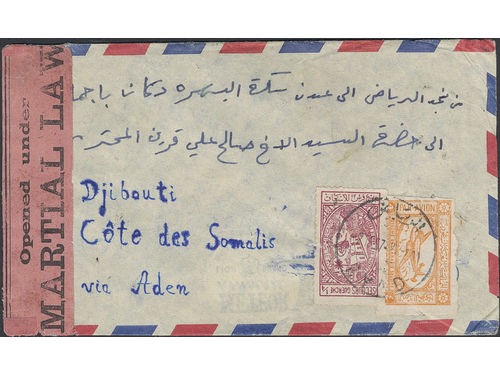 Opened under
MARTIAL LAW
من نجد الرياض الى عدن سكة البسمره دكان باجما
الى حضرة السيد الاخ صالح علي قرين المحتر
Djibouti
Côte des Somalis
via Aden
SECOURS GUERRE